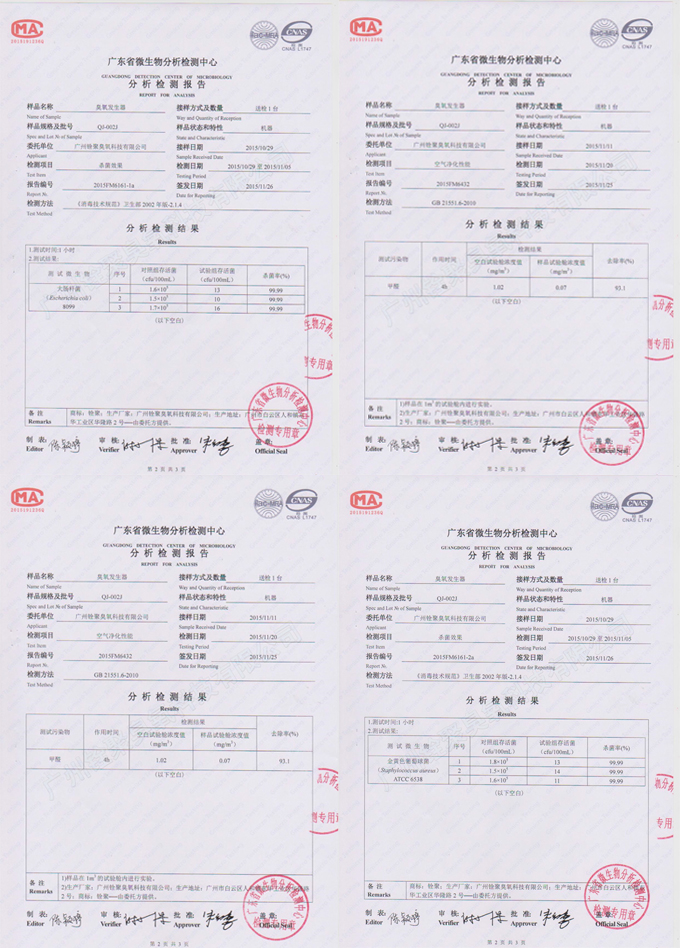 MA
2015191220Q
ilac-MRA
CNAS
CNAS L1747
广东省微生物分析检测中心
GUANGDONG DETECTION CENTER OF MICROBIOLOGY
分析检测报告
REPORT FOR ANALYSIS
样品名称 臭氧发生器 接样方式及数量 送检1台
Name of Sample Way and Quantity of Reception
样品规格及批号 QJ-002J 样品状态和特性 机器
Spec and Lot № of Sample State and Characteristic
委托单位 广州铨聚臭氧科技有限公司 接样日期 2015/10/29
Applicant Sample Received Date
检测项目 杀菌效果 检测日期 2015/10/29 至 2015/11/05
Test Item Testing Period
报告编号 2015FM6161-1a 签发日期 2015/11/26
Report №. Date for Reporting
检测方法 《消毒技术规范》卫生部 2002 年版-2.1.4
Test Method
分析检测结果
Results
1.测试时间:1 小时
2.测试结果:
测试微生物 序号 对照组存活菌 (cfu/100mL) 试验组存活菌 (cfu/100mL) 杀菌率(%)
大肠杆菌 1 1.6×10⁵ 13 99.99
(Escherichia coli) 2 1.5×10⁵ 10 99.99
8099 3 1.7×10⁵ 16 99.99
(以下空白)
备注 商标：铨聚；生产厂家：广州铨聚臭氧科技有限公司；生产地址：广州市白云区人和镇
Remarks 华工业区华陵路 2 号----由委托方提供。
制表: 审核: 批准: 盖章:
Editor Verifier Approver Official Seal
第 2 页 共 3 页
MA
2015191220Q
ilac-MRA
CNAS
CNAS L1747
广东省微生物分析检测中心
GUANGDONG DETECTION CENTER OF MICROBIOLOGY
分析检测报告
REPORT FOR ANALYSIS
样品名称 臭氧发生器 接样方式及数量 送检1台
Name of Sample Way and Quantity of Reception
样品规格及批号 QJ-002J 样品状态和特性 机器
Spec and Lot № of Sample State and Characteristic
委托单位 广州铨聚臭氧科技有限公司 接样日期 2015/11/11
Applicant Sample Received Date
检测项目 空气净化性能 检测日期 2015/11/20
Test Item Testing Period
报告编号 2015FM6432 签发日期 2015/11/25
Report №. Date for Reporting
检测方法 GB 21551.6-2010
Test Method
分析检测结果
Results
检测结果
测试污染物 作用时间 空白试验舱浓度值 (mg/m³) 样品试验舱浓度值 (mg/m³) 去除率(%)
甲醛 4h 1.02 0.07 93.1
(以下空白)
备注 1)样品在 1m³ 的试验舱内进行实验。
Remarks 2)生产厂家：广州铨聚臭氧科技有限公司；生产地址：广州市白云区
2 号；商标：铨聚----由委托方提供。
制表: 审核: 批准: 盖章:
Editor Verifier Approver Official Seal
第 2 页 共 3 页
MA
2015191220Q
ilac-MRA
CNAS
CNAS L1747
广东省微生物分析检测中心
GUANGDONG DETECTION CENTER OF MICROBIOLOGY
分析检测报告
REPORT FOR ANALYSIS
样品名称 臭氧发生器 接样方式及数量 送检1台
Name of Sample Way and Quantity of Reception
样品规格及批号 QJ-002J 样品状态和特性 机器
Spec and Lot № of Sample State and Characteristic
委托单位 广州铨聚臭氧科技有限公司 接样日期 2015/11/11
Applicant Sample Received Date
检测项目 空气净化性能 检测日期 2015/11/20
Test Item Testing Period
报告编号 2015FM6432 签发日期 2015/11/25
Report №. Date for Reporting
检测方法 GB 21551.6-2010
Test Method
分析检测结果
Results
检测结果
测试污染物 作用时间 空白试验舱浓度值 (mg/m³) 样品试验舱浓度值 (mg/m³) 去除率(%)
甲醛 4h 1.02 0.07 93.1
(以下空白)
备注 1)样品在 1m³ 的试验舱内进行实验。
Remarks 2)生产厂家：广州铨聚臭氧科技有限公司；生产地址：广州市白云区
2 号；商标：铨聚----由委托方提供。
制表: 审核: 批准: 盖章:
Editor Verifier Approver Official Seal
第 2 页 共 3 页
MA
2015191220Q
ilac-MRA
CNAS
CNAS L1747
广东省微生物分析检测中心
GUANGDONG DETECTION CENTER OF MICROBIOLOGY
分析检测报告
REPORT FOR ANALYSIS
样品名称 臭氧发生器 接样方式及数量 送检1台
Name of Sample Way and Quantity of Reception
样品规格及批号 QJ-002J 样品状态和特性 机器
Spec and Lot № of Sample State and Characteristic
委托单位 广州铨聚臭氧科技有限公司 接样日期 2015/10/29
Applicant Sample Received Date
检测项目 杀菌效果 检测日期 2015/10/29 至 2015/11/05
Test Item Testing Period
报告编号 2015FM6161-2a 签发日期 2015/11/26
Report №. Date for Reporting
检测方法 《消毒技术规范》卫生部 2002 年版-2.1.4
Test Method
分析检测结果
Results
1.测试时间:1 小时
2.测试结果:
测试微生物 序号 对照组存活菌 (cfu/100mL) 试验组存活菌 (cfu/100mL) 杀菌率(%)
金黄色葡萄球菌 1 1.8×10⁵ 13 99.99
(Staphylococcus aureus) 2 1.5×10⁵ 14 99.99
ATCC 6538 3 1.6×10⁵ 11 99.99
(以下空白)
备注 商标：铨聚；生产厂家：广州铨聚臭氧科技有限公司；生产地址：广州市白云区人和镇
Remarks 华工业区华陵路 2 号----由委托方提供。
制表: 审核: 批准: 盖章:
Editor Verifier Approver Official Seal
第 2 页 共 3 页